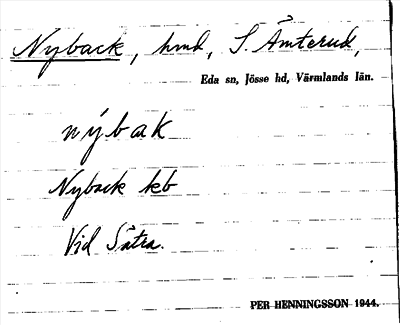 Nyback, hmd, S. Åmterud,
Eda sn, Jösse hd, Värmlands län.
nýbak
Nyback kb
Vid Sätra.
PER HENNINGSSON 1944.